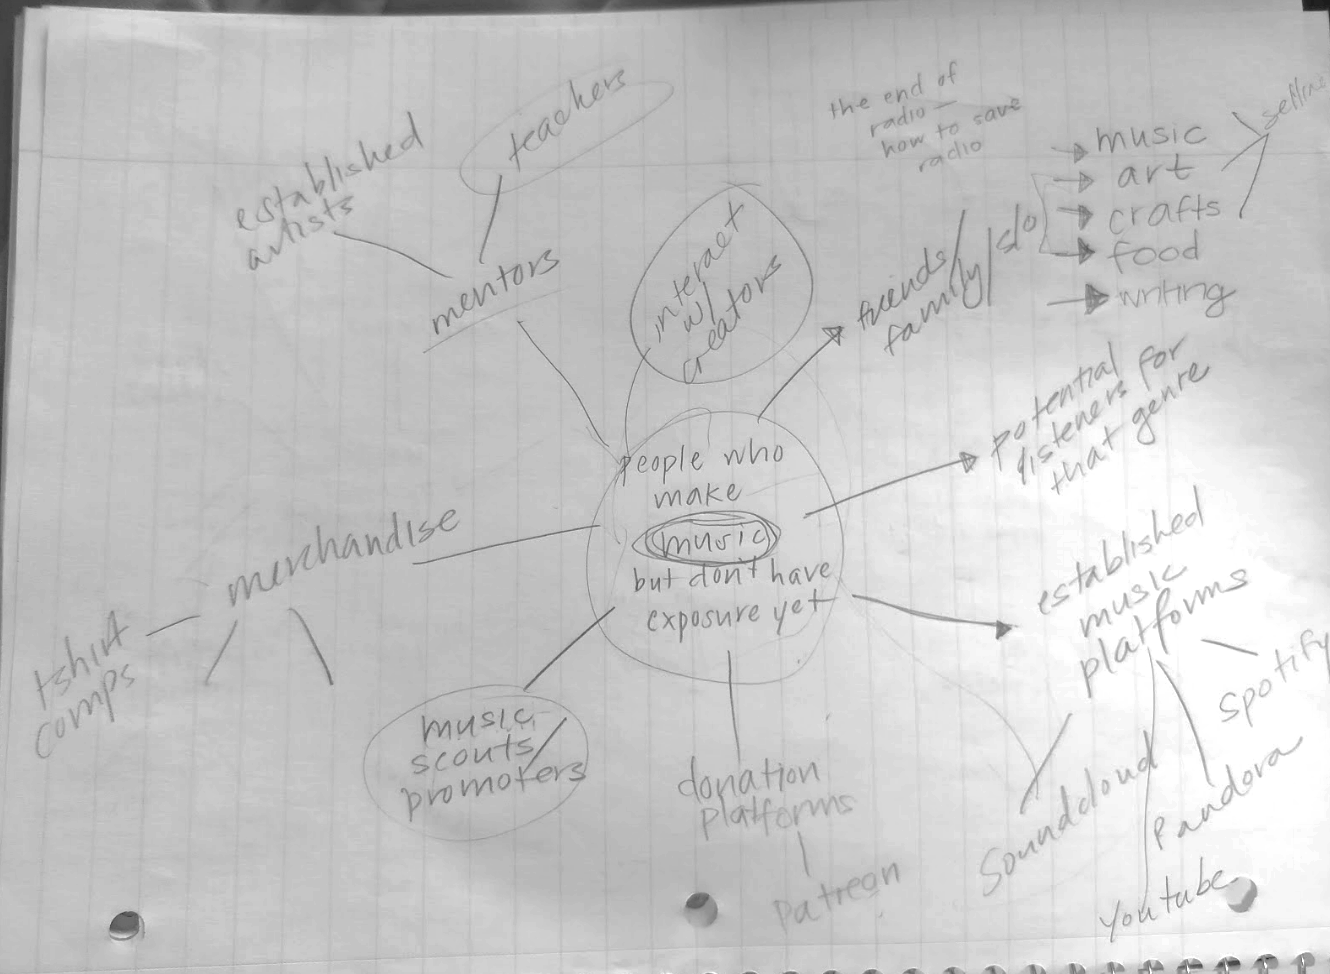 teachers
established
artists
mentors
interact
w/
creators
the end of
radio —
how to save
radio
friends/
family/
music
art
crafts
food
writing
potential
listeners for
that genre
people who
make
music
but don't have
exposure yet
merchandise
tshirt
comps
music
scouts/
promoters
donation
platforms
Patreon
established
music
platforms
Spotify
Pandora
Soundcloud
Youtube